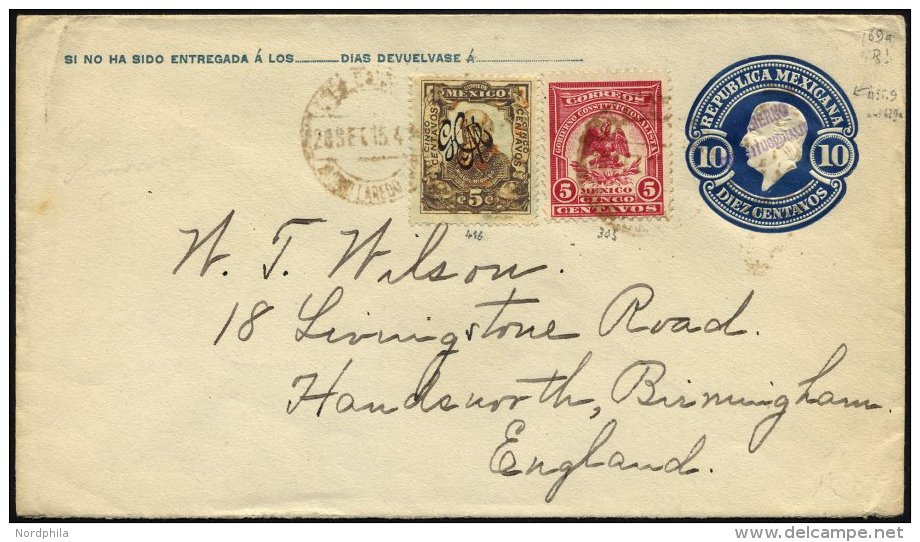 SI NO HA SIDO ENTREGADA Á LOS ______ DIAS DEVUELVASE Á ______
28 SET. 15. 4
LAREDO
MEXICO
CENTAVOS
5
CORREOS
GOBIERNO CONSTITUCIONALISTA
5 MEXICO 5
CINCO
CENTAVOS
REPUBLICA MEXICANA
10 10
DIEZ CENTAVOS
416
305
W. T. Wilson.
18 Livingstone Road.
Handsworth, Birmingham.
England.
Nordphila
delcampe.net